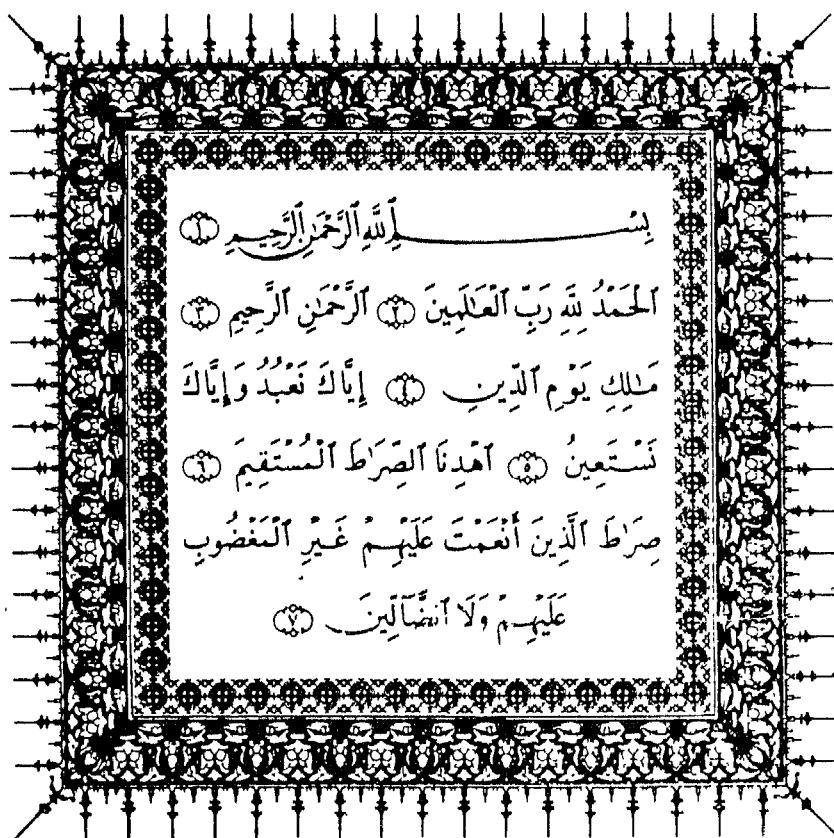 بِسْمِ ٱللَّهِ ٱلرَّحْمَـٰنِ ٱلرَّحِيمِ ١
ٱلْحَمْدُ لِلَّهِ رَبِّ ٱلْعَـٰلَمِينَ ٢ ٱلرَّحْمَـٰنِ ٱلرَّحِيمِ ٣
مَـٰلِكِ يَوْمِ ٱلدِّينِ ٤ إِيَّاكَ نَعْبُدُ وَإِيَّاكَ
نَسْتَعِينُ ٥ ٱهْدِنَا ٱلصِّرَٰطَ ٱلْمُسْتَقِيمَ ٦
صِرَٰطَ ٱلَّذِينَ أَنْعَمْتَ عَلَيْهِمْ غَيْرِ ٱلْمَغْضُوبِ
عَلَيْهِمْ وَلَا ٱلضَّآلِّينَ ٧